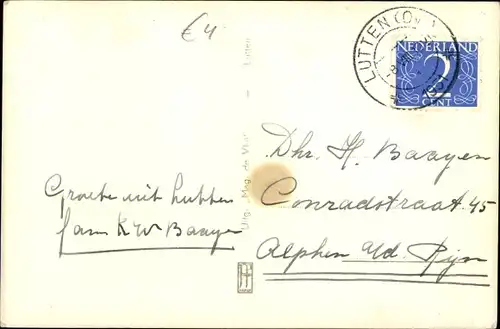 €4
LUTTEN (Ov.)
1951
NEDERLAND
2
CENT
Uitg. Mag. de Vries Lutten
Dhr. H. Baayen
Conradstraat 45
Alphen a/d. Rijn
Groete uit Lutten
fam K W Baayen